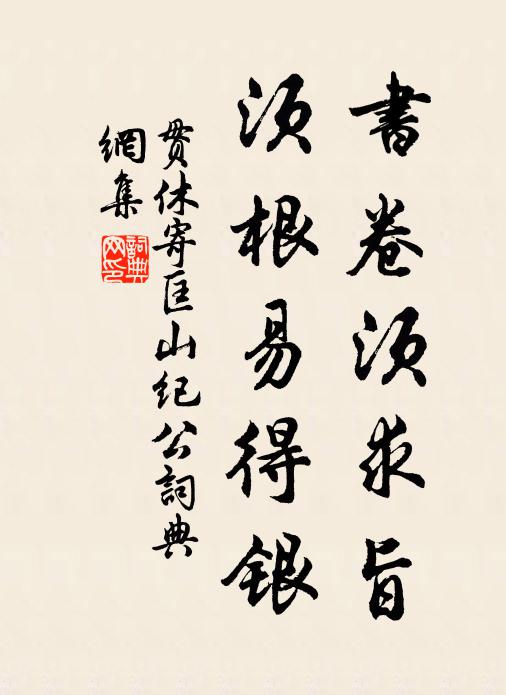 書卷須求旨
須根易得銀
貫休寄匡山紀公詞典
網集
詞典網印